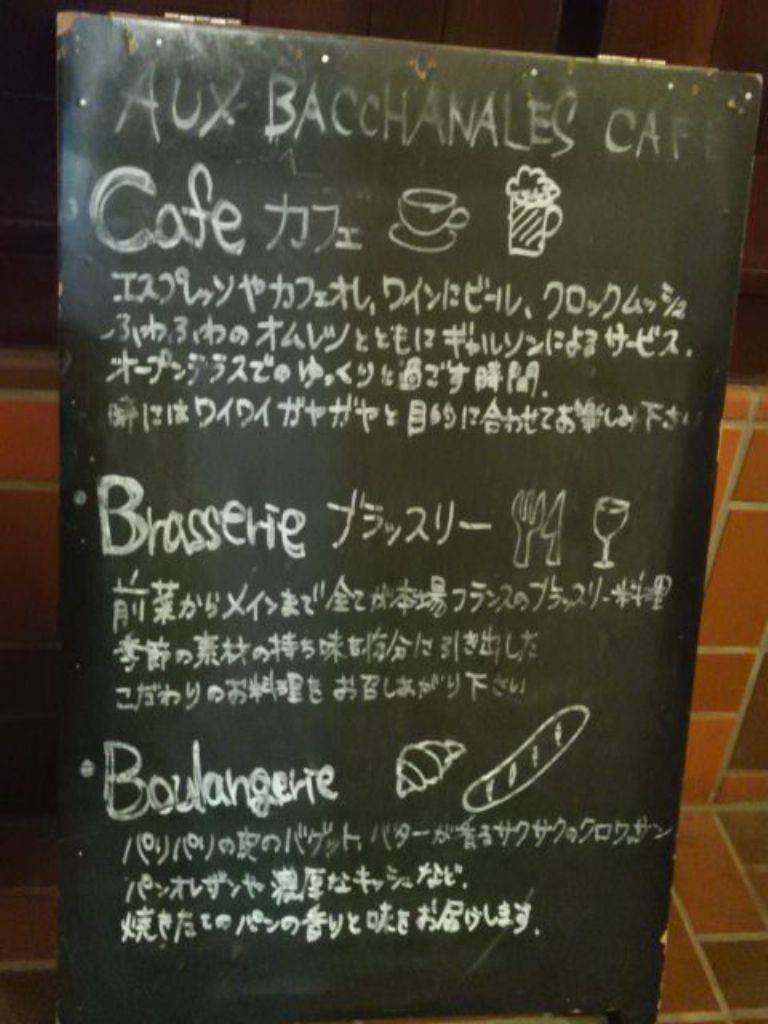 AUX BACCHANALES CAFE
Cafe カフェ
エスプレッソやカフェオレ、ワインにビール、クロックムッシュ
ふわふわのオムレツとともにギャルソンによるサービス.
オープンテラスでのゆっくりと過ごす時間.
時にはワイワイガヤガヤと目的に合わせてお楽しみ下さい
Brasserie ブラッスリー
前菜からメインまで全てが本場フランスのブラッスリー料理
季節の素材の持ち味を存分に引き出した
こだわりのお料理をお召しあがり下さい
Boulangerie
パリパリの皮のバゲット、バターが香るサクサクのクロワッサン
パンオレザンや濃厚なキッシュなど.
焼きたてのパンの香りと味をお届けします.